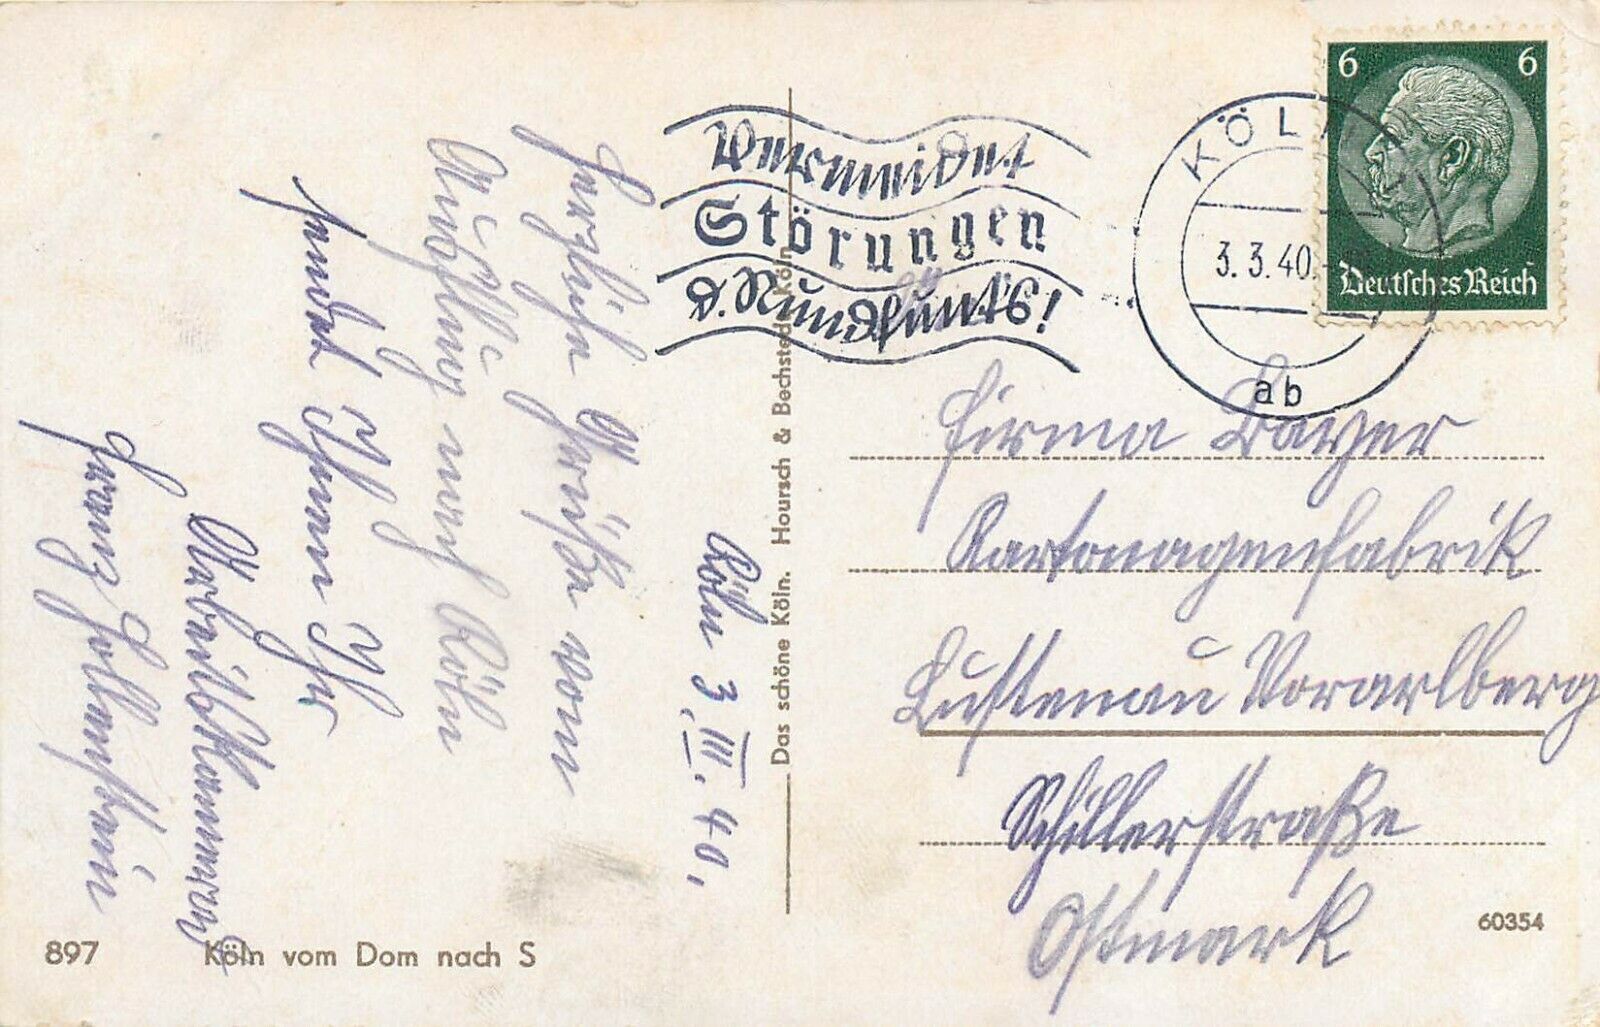 Köln 3. III. 40.
Herzliche Grüße vom
Ausflug nach Köln
sendet Ihnen Ihr
Arbeitskamerad
Franz Hollenstein
Vermeidet
Störungen
d. Rundfunks!
KÖLN
3.3.40.
ab
6 6
Deutsches Reich
Firma Bayer
Kartonagenfabrik
Lustenau Vorarlberg
Schillerstraße
Ostmark
Das schöne Köln. Hoursch & Bechstedt, Köln
897 Köln vom Dom nach S
60354